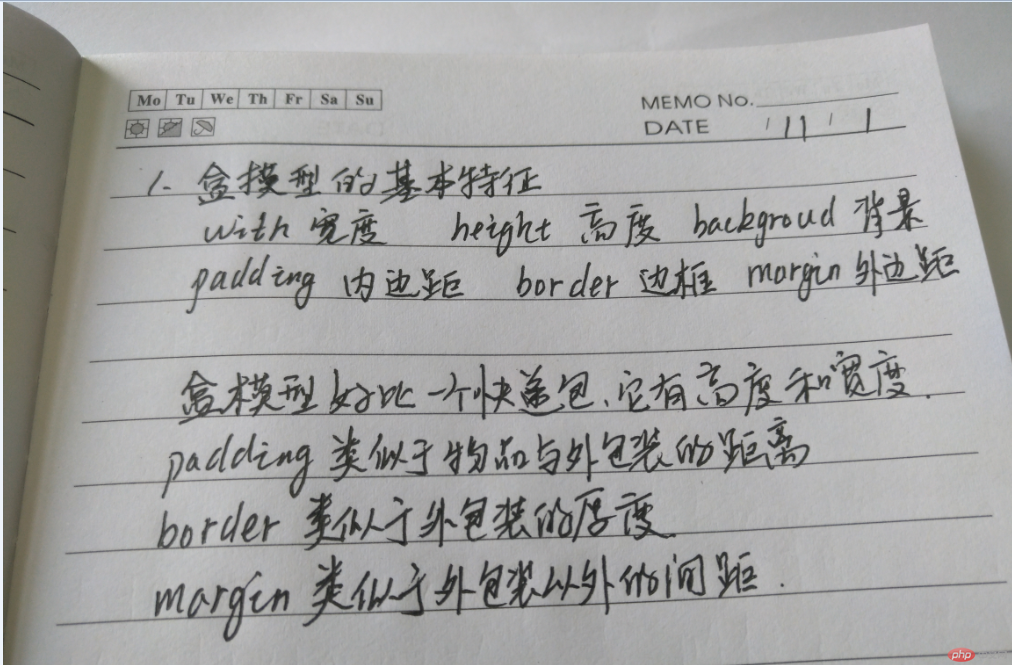 Mo Tu We Th Fr Sa Su
MEMO No.
DATE / 11 / 1
1. 盒模型的基本特征
with 宽度 height 高度 backgroud 背景
padding 内边距 border 边框 margin 外边距
盒模型好比一个快递包、它有高度和宽度.
padding 类似于物品与外包装的距离
border 类似于外包装的厚度
margin 类似于外包装以外的间距.
php